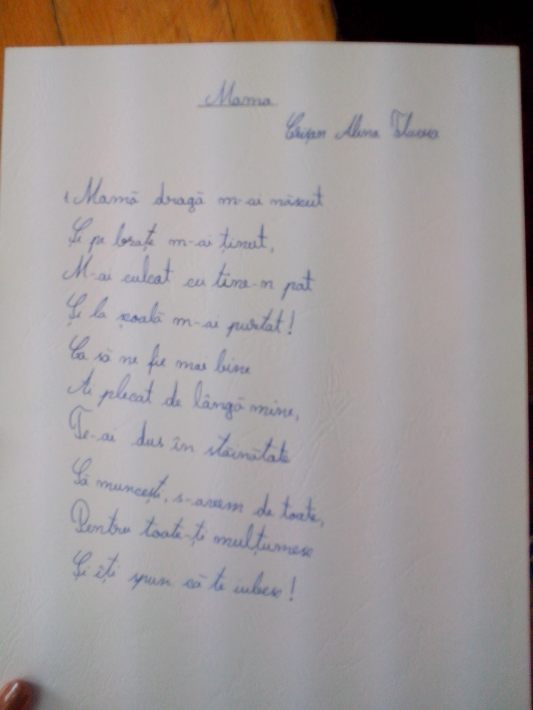 Mama
Crișan Alina Flavia
Mamă dragă m-ai născut
Și pe brațe m-ai ținut,
M-ai culcat cu tine-n pat
Și la școală m-ai purtat!
Ca să ne fie mai bine
Ai plecat de lângă mine,
Te-ai dus în străinătate
Să muncești, s-avem de toate,
Pentru toate-ți mulțumesc
Și îți spun că te iubesc!